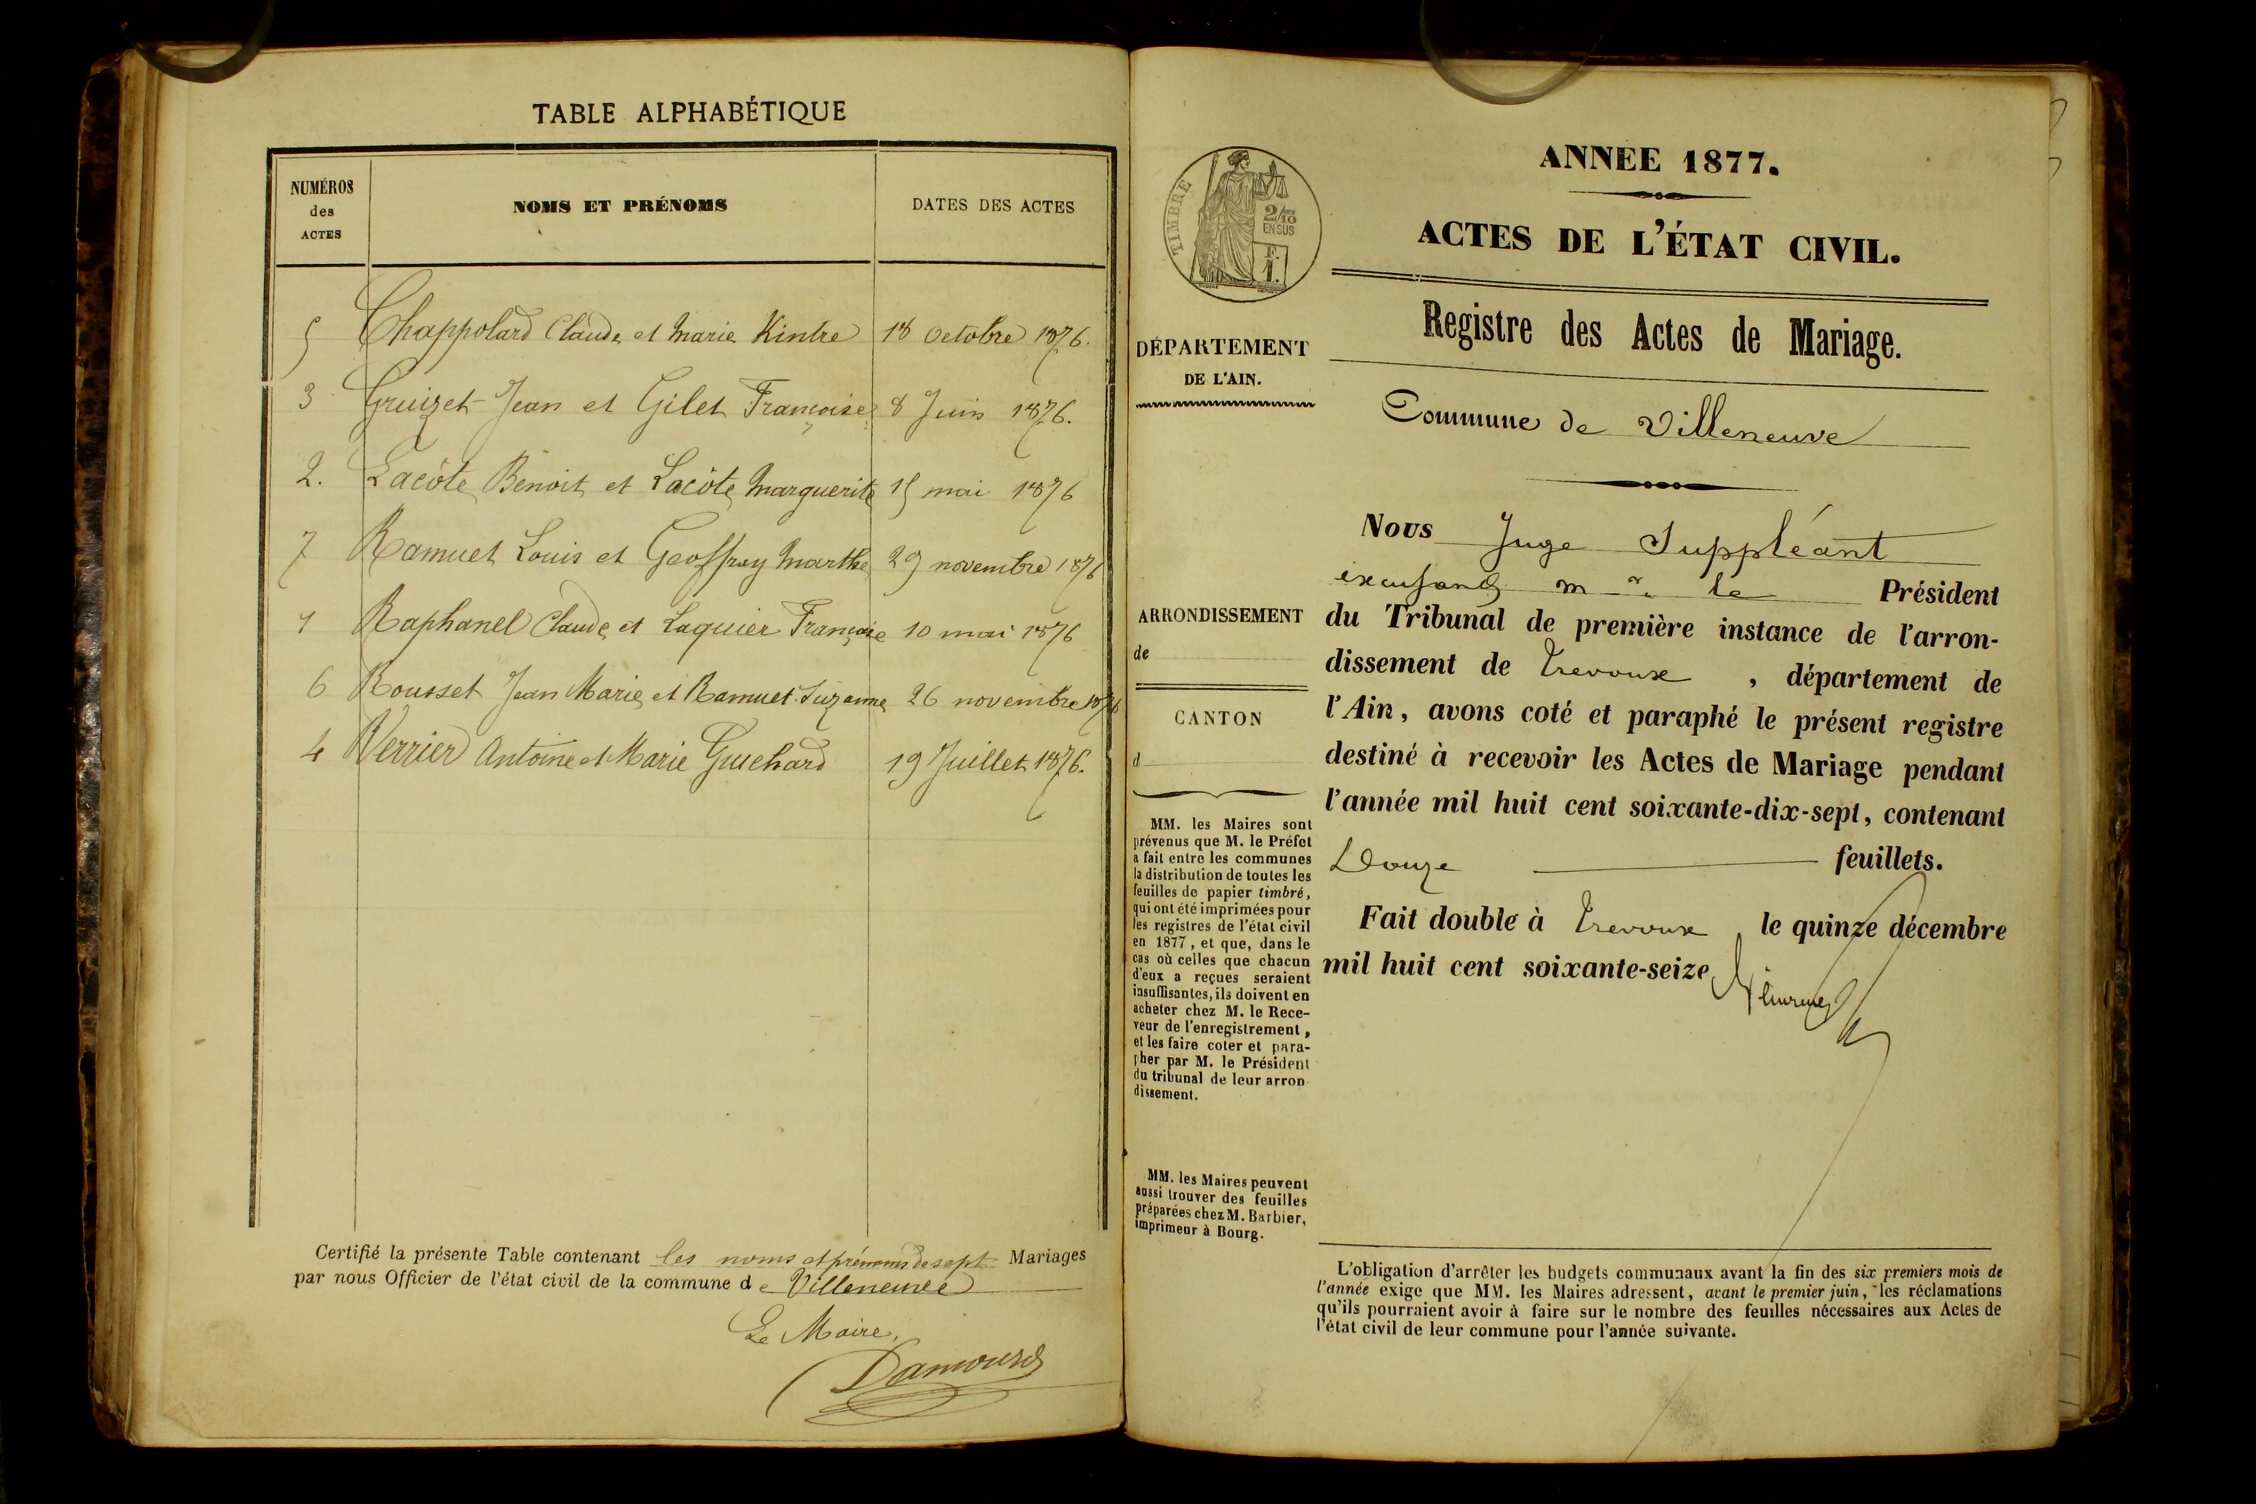 TABLE ALPHABÉTIQUE
NUMÉROS
des
ACTES
NOMS ET PRÉNOMS
DATES DES ACTES
5 Chappolard Claude et Marie Kintre 18 Octobre 1876.
3 Gruizet Jean et Gilet Françoise 8 Juin 1876.
2. Lacôte Benoit et Lacôte Marguerite 15 mai 1876
7 Ramuet Louis et Geoffray Marthe 29 novembre 1876
1 Raphanel Claude et Laquier Françoise 10 mai 1876
6 Rousset Jean Marie et Ramuet Suzanne 26 novembre 1876
4 Verrier Antoine et Marie Guichard 19 Juillet 1876.
Certifié la présente Table contenant les noms et prénoms de sept Mariages
par nous Officier de l'état civil de la commune de Villeneuve
Le Maire,
Damours
TIMBRE
2/10
EN SUS
F.
1.
DÉPARTEMENT
DE L'AIN.
ARRONDISSEMENT
de
CANTON
d
MM. les Maires sont
prévenus que M. le Préfet
a fait entre les communes
la distribution de toutes les
feuilles de papier timbré,
qui ont été imprimées pour
les registres de l'état civil
en 1877, et que, dans le
cas où celles que chacun
d'eux a reçues seraient
insuffisantes, ils doivent en
acheter chez M. le Rece-
veur de l'enregistrement,
et les faire coter et para-
pher par M. le Président
du tribunal de leur arron
dissement.
MM. les Maires peuvent
aussi trouver des feuilles
préparées chez M. Barbier,
imprimeur à Bourg.
ANNÉE 1877.
ACTES DE L'ÉTAT CIVIL.
Registre des Actes de Mariage.
Commune de Villeneuve
Nous Juge Suppléant
m r le Président
du Tribunal de première instance de l'arron-
dissement de Trevoux, département de
l'Ain, avons coté et paraphé le présent registre
destiné à recevoir les Actes de Mariage pendant
l'année mil huit cent soixante-dix-sept, contenant
Douze feuillets.
Fait double à Trevoux le quinze décembre
mil huit cent soixante-seize
L'obligation d'arrêter les budgets communaux avant la fin des six premiers mois de
l'année exige que MM. les Maires adressent, avant le premier juin, les réclamations
qu'ils pourraient avoir à faire sur le nombre des feuilles nécessaires aux Actes de
l'état civil de leur commune pour l'année suivante.